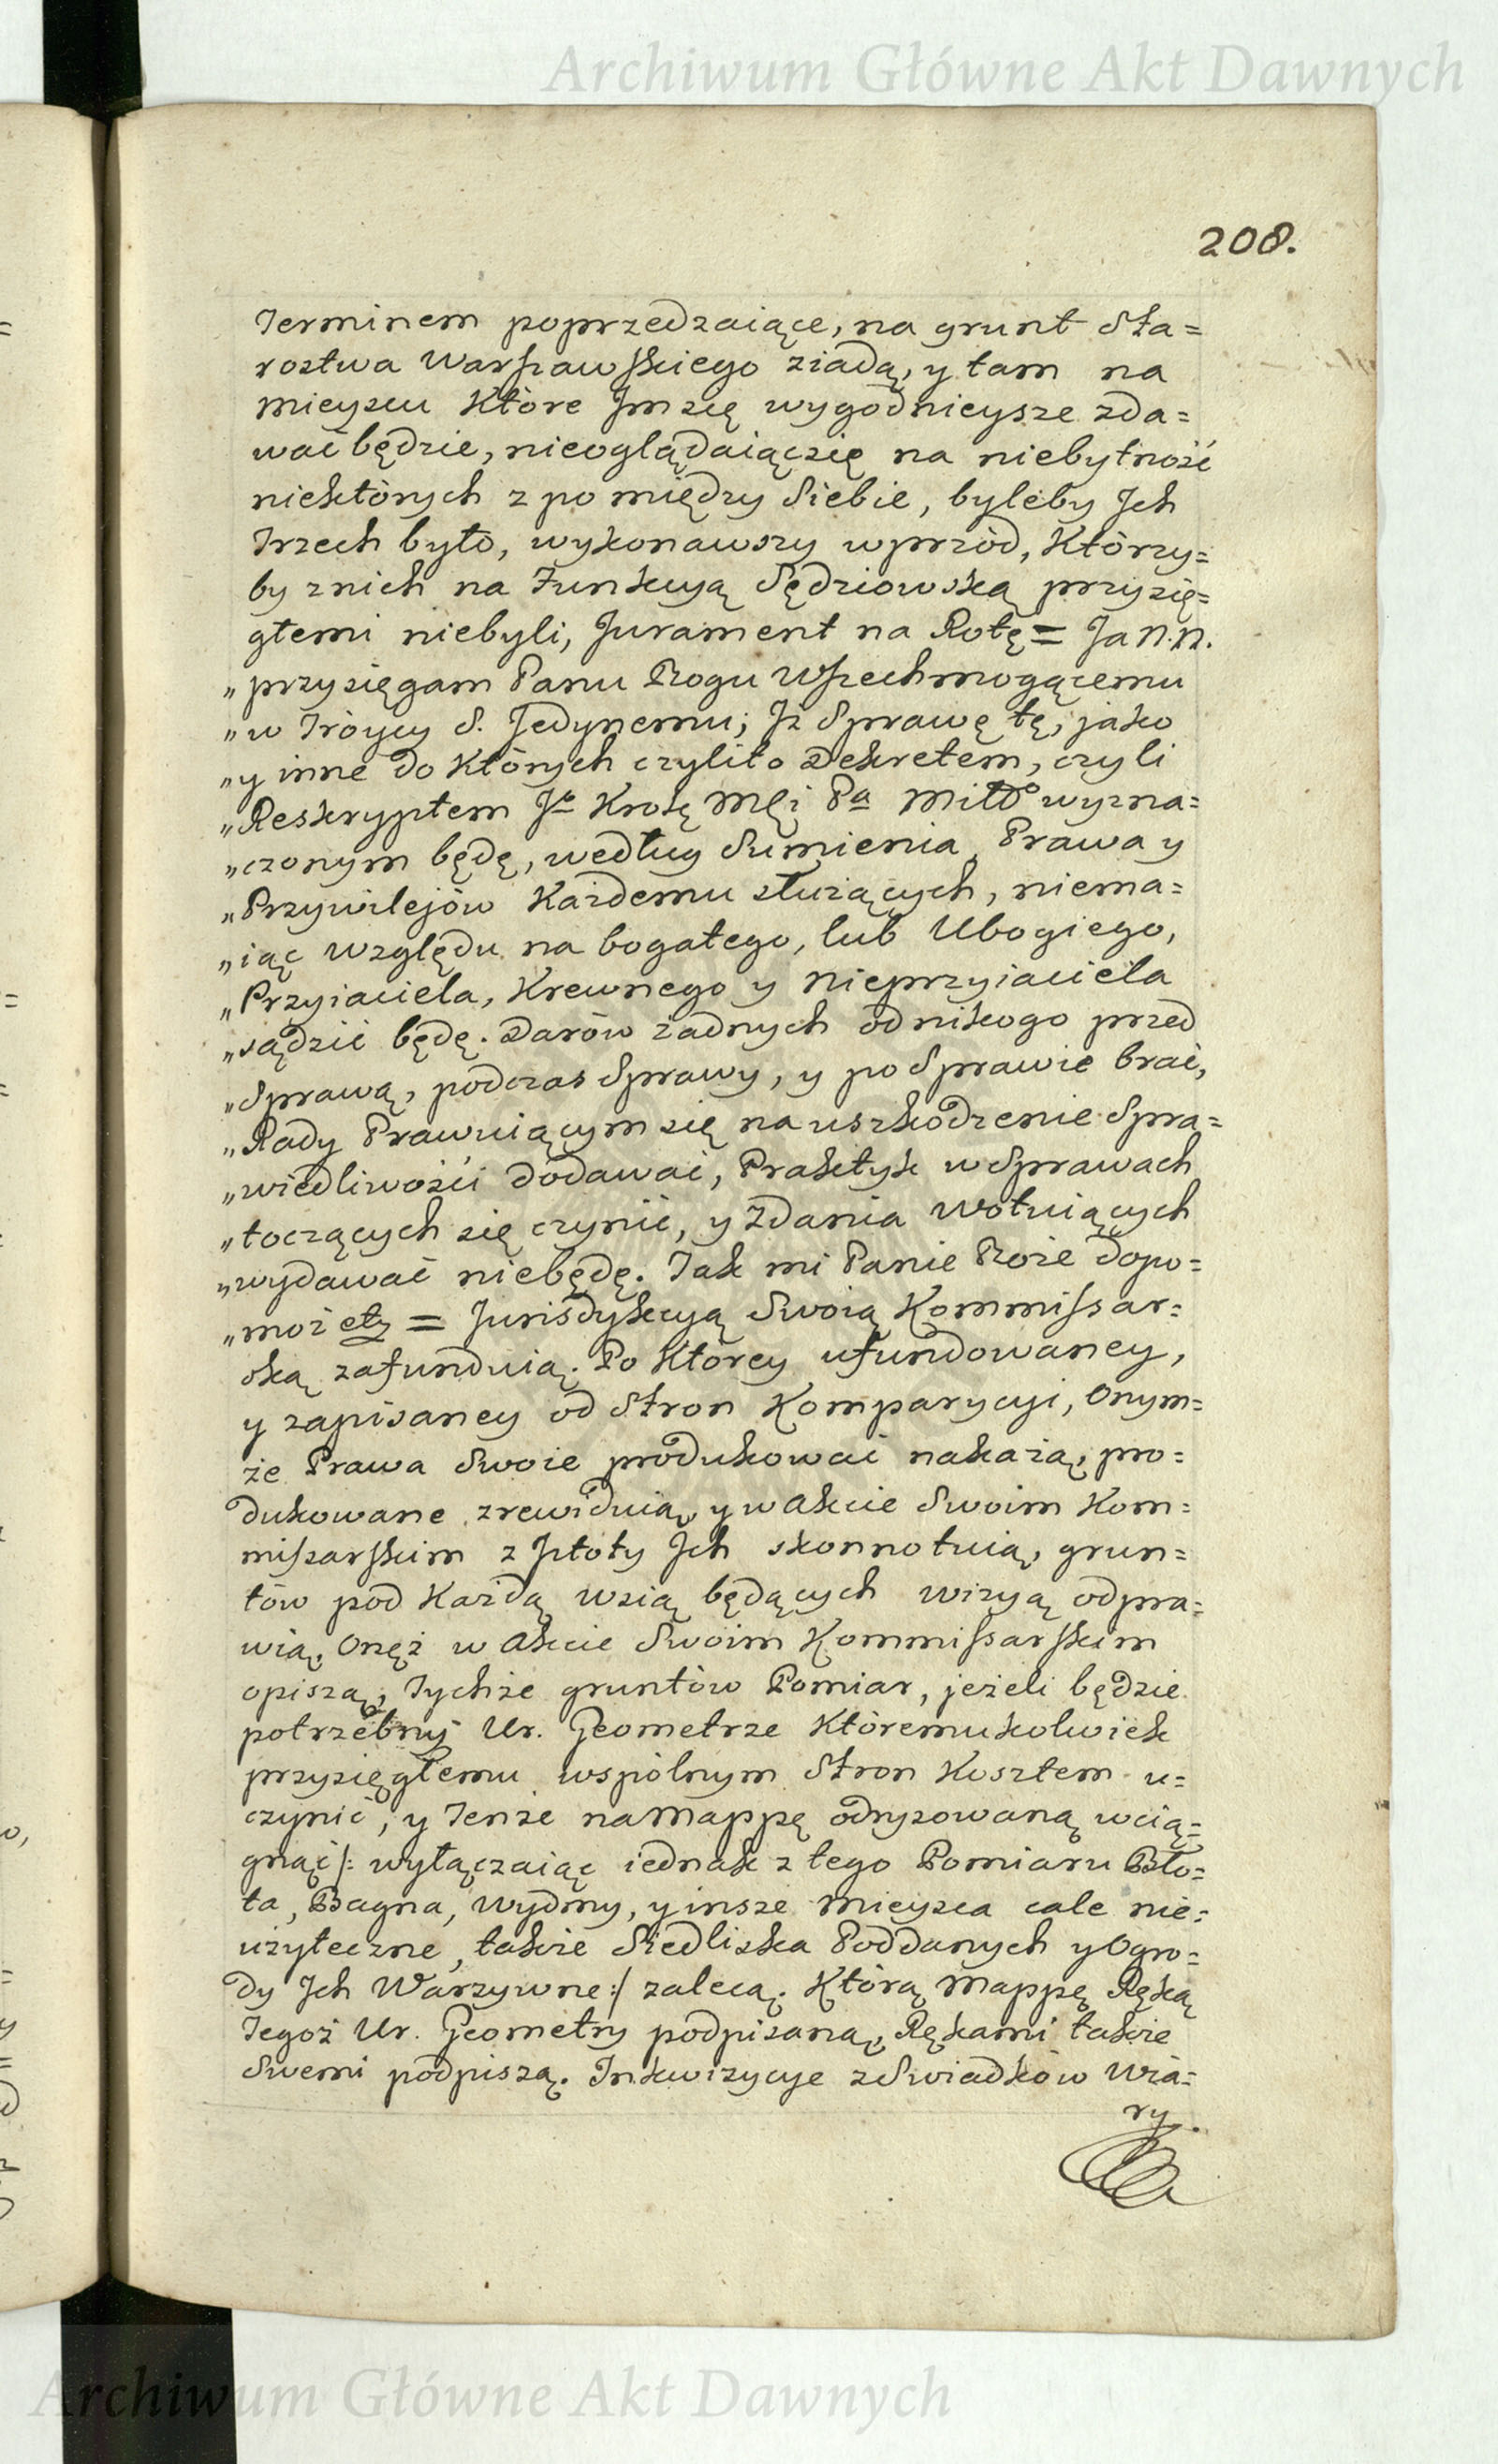 Archiwum Główne Akt Dawnych
208.
Terminem poprzedzaiące, na grunt Sta=
rostwa Warszawskiego ziadą, y tam na
mieyscu Które Im się wygodnieysze zda=
wać będzie, nieoglądaiąc się na niebytność
niektórych z po między Siebie, byleby Jch
Trzech było, wykonawszy wprzód, Którzy=
by z nich na Funkcyą Sędziowską przysię=
głemi niebyli, Jurament na Rotę = Ja N.N.
„przysięgam Panu Bogu Wszechmogącemu
„w Tróycy S. Jedynemu; Jż Sprawę tę, jako
„y inne do Których czylito Dekretem, czyli
„Reskryptem Jo Krolę Mci Pa Miłdo wyzna=
„czonym będę, według Sumienia, Prawa y
„Przywilejów Każdemu służących, niema=
„iąc względu na bogatego, lub Ubogiego,
„Przyiaciela, Krewnego y nieprzyiaciela
„sądzić będę. Darów żadnych od nikogo przed
„Sprawą, podczas Sprawy, y po Sprawie brać,
„Rady Prawuiącym się na uszkodzenie Spra=
„wiedliwości dodawać, Praktyk w Sprawach
„toczących się czynić, y Zdania Wotuiących
„wydawać niebędę. Tak mi Panie Boże dopo=
„moż etz = Jurisdykcyą Swoią Kommissar=
ską zafunduią. Po Którey ufundowaney,
y zapisaney od Stron Komparycyi, Onym=
że Prawa Swoie produkować nakażą, pro=
dukowane zrewiduią, y w Akcie Swoim Kom=
missarskim z Jstoty Jch skonnotuią, grun=
tów pod Każdą wsią będących wizyą odpra=
wią, Onęż w Akcie Swoim Kommissarskim
opiszą, Tychże gruntów Pomiar, jeżeli będzie
potrzebny Ur. Geometrze Któremukolwiek
przysięgłemu wspólnym Stron Kosztem u=
czynić, y Tenże na Mappę odrysowaną wcią=
gnąć /: wyłączaiąc iednak z tego Pomiaru Bło=
ta, Bagna, Wydmy, y insze Mieysca cale nie=
użyteczne, także Siedliska Poddanych y Ogro=
dy Jch Warzywne :/ zalecą. Którą Mappę Ręką
Tegoż Ur. Geometry podpisaną, Rękami także
Swemi podpiszą. Inkwizycye z Swiadków Wia=
ry.
Archiwum Główne Akt Dawnych